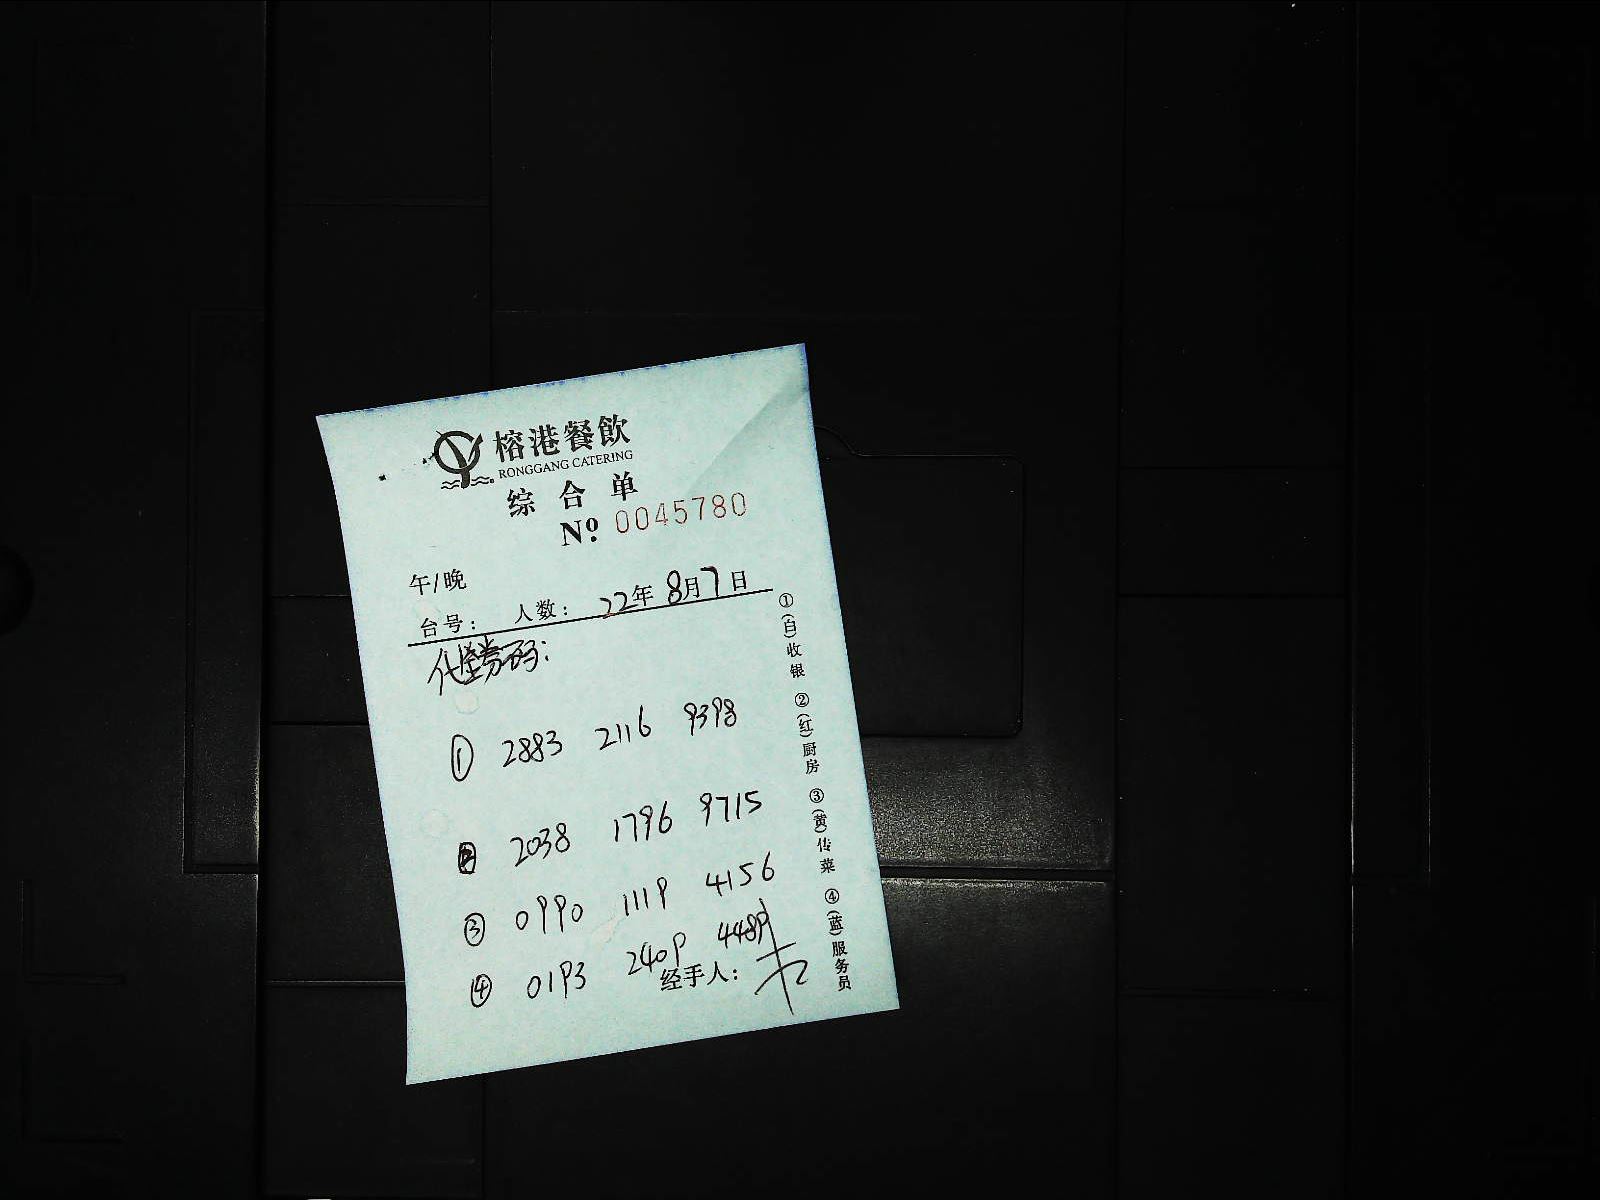 榕港餐飲
RONGGANG CATERING
综合单
Nº: 0045780
午/晚
台号： 人数： 22年 8月7日
代金券码：
① 2883 2116 9398
② 2038 1796 9715
③ 0990 1119 4156
④ 0193 2409 4489
经手人：
①(白)收银 ②(红)厨房 ③(黄)传菜 ④(蓝)服务员